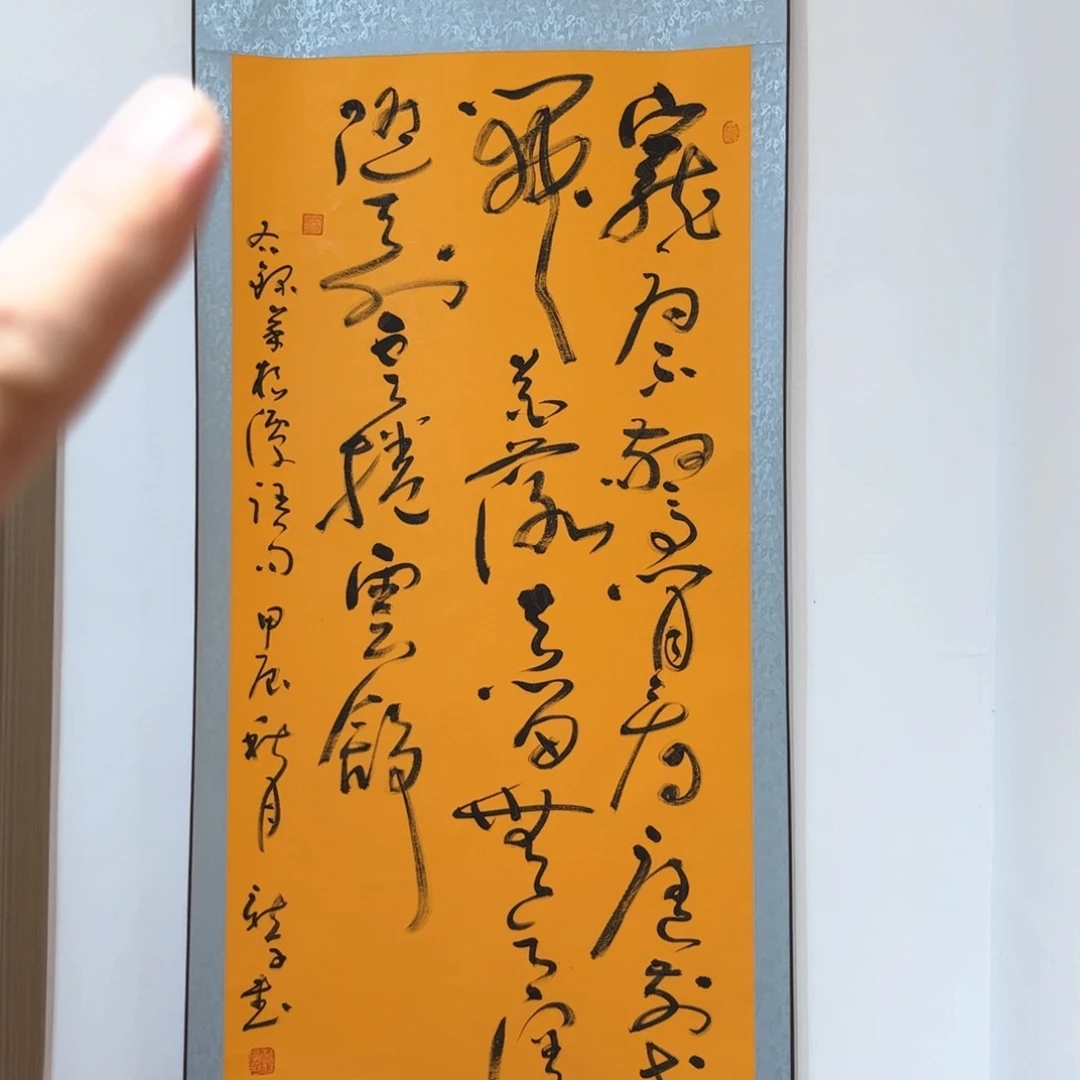 寵辱不驚閒看庭前花
開花落去留無意漫
隨天外雲捲雲舒
右錄菜根譚語句 甲辰秋月 子書